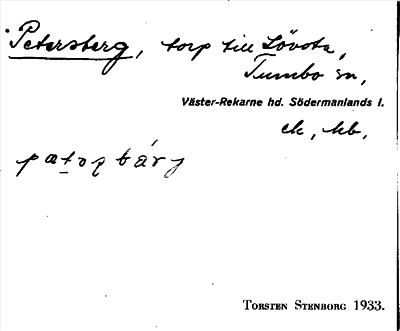 Petersberg, torp till Lövsta,
Tumbo sn,
Väster-Rekarne hd. Södermanlands l.
ek, hb.
Torsten Stenborg 1933.